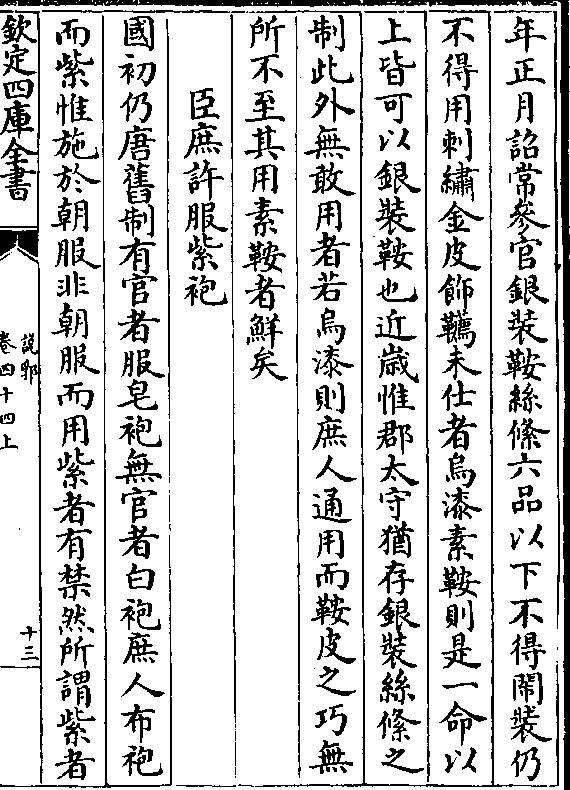 年正月詔常參官銀裝鞍絲絛六品以下不得閙裝仍
不得用刺繡金皮飾韉未仕者烏漆素鞍則是一命以
上皆可以銀裝鞍也近歲惟郡太守猶存銀裝絲絛之
制此外無敢用者若烏漆則庶人通用而鞍皮之巧無
所不至其用素鞍者鮮矣
臣庶許服紫袍
國初仍唐舊制有官者服皂袍無官者白袍庶人布袍
而紫惟施於朝服非朝服而用紫者有禁然所謂紫者
欽定四庫全書
說郛
卷四十四上
十三